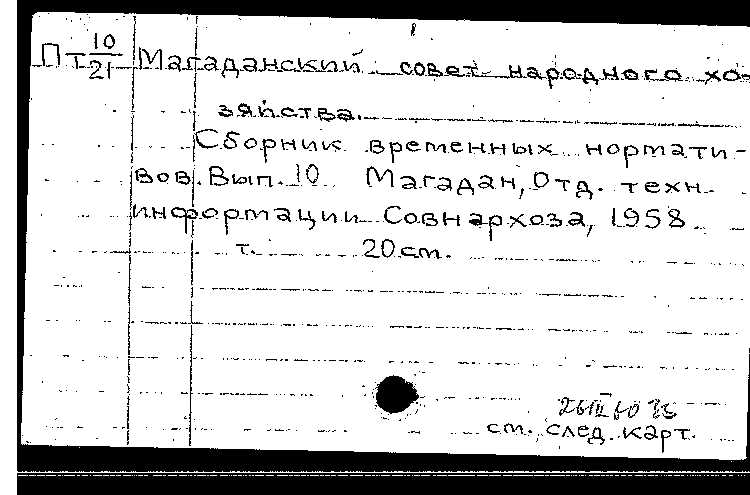 Пт 10/21 Магаданский совет народного хо-
зяйства.
Сборник временных нормати-
вов. Вып. 10 Магадан, Отд. техн.
информации Совнархоза, 1958.
т. 20 см.
см. след. карт.